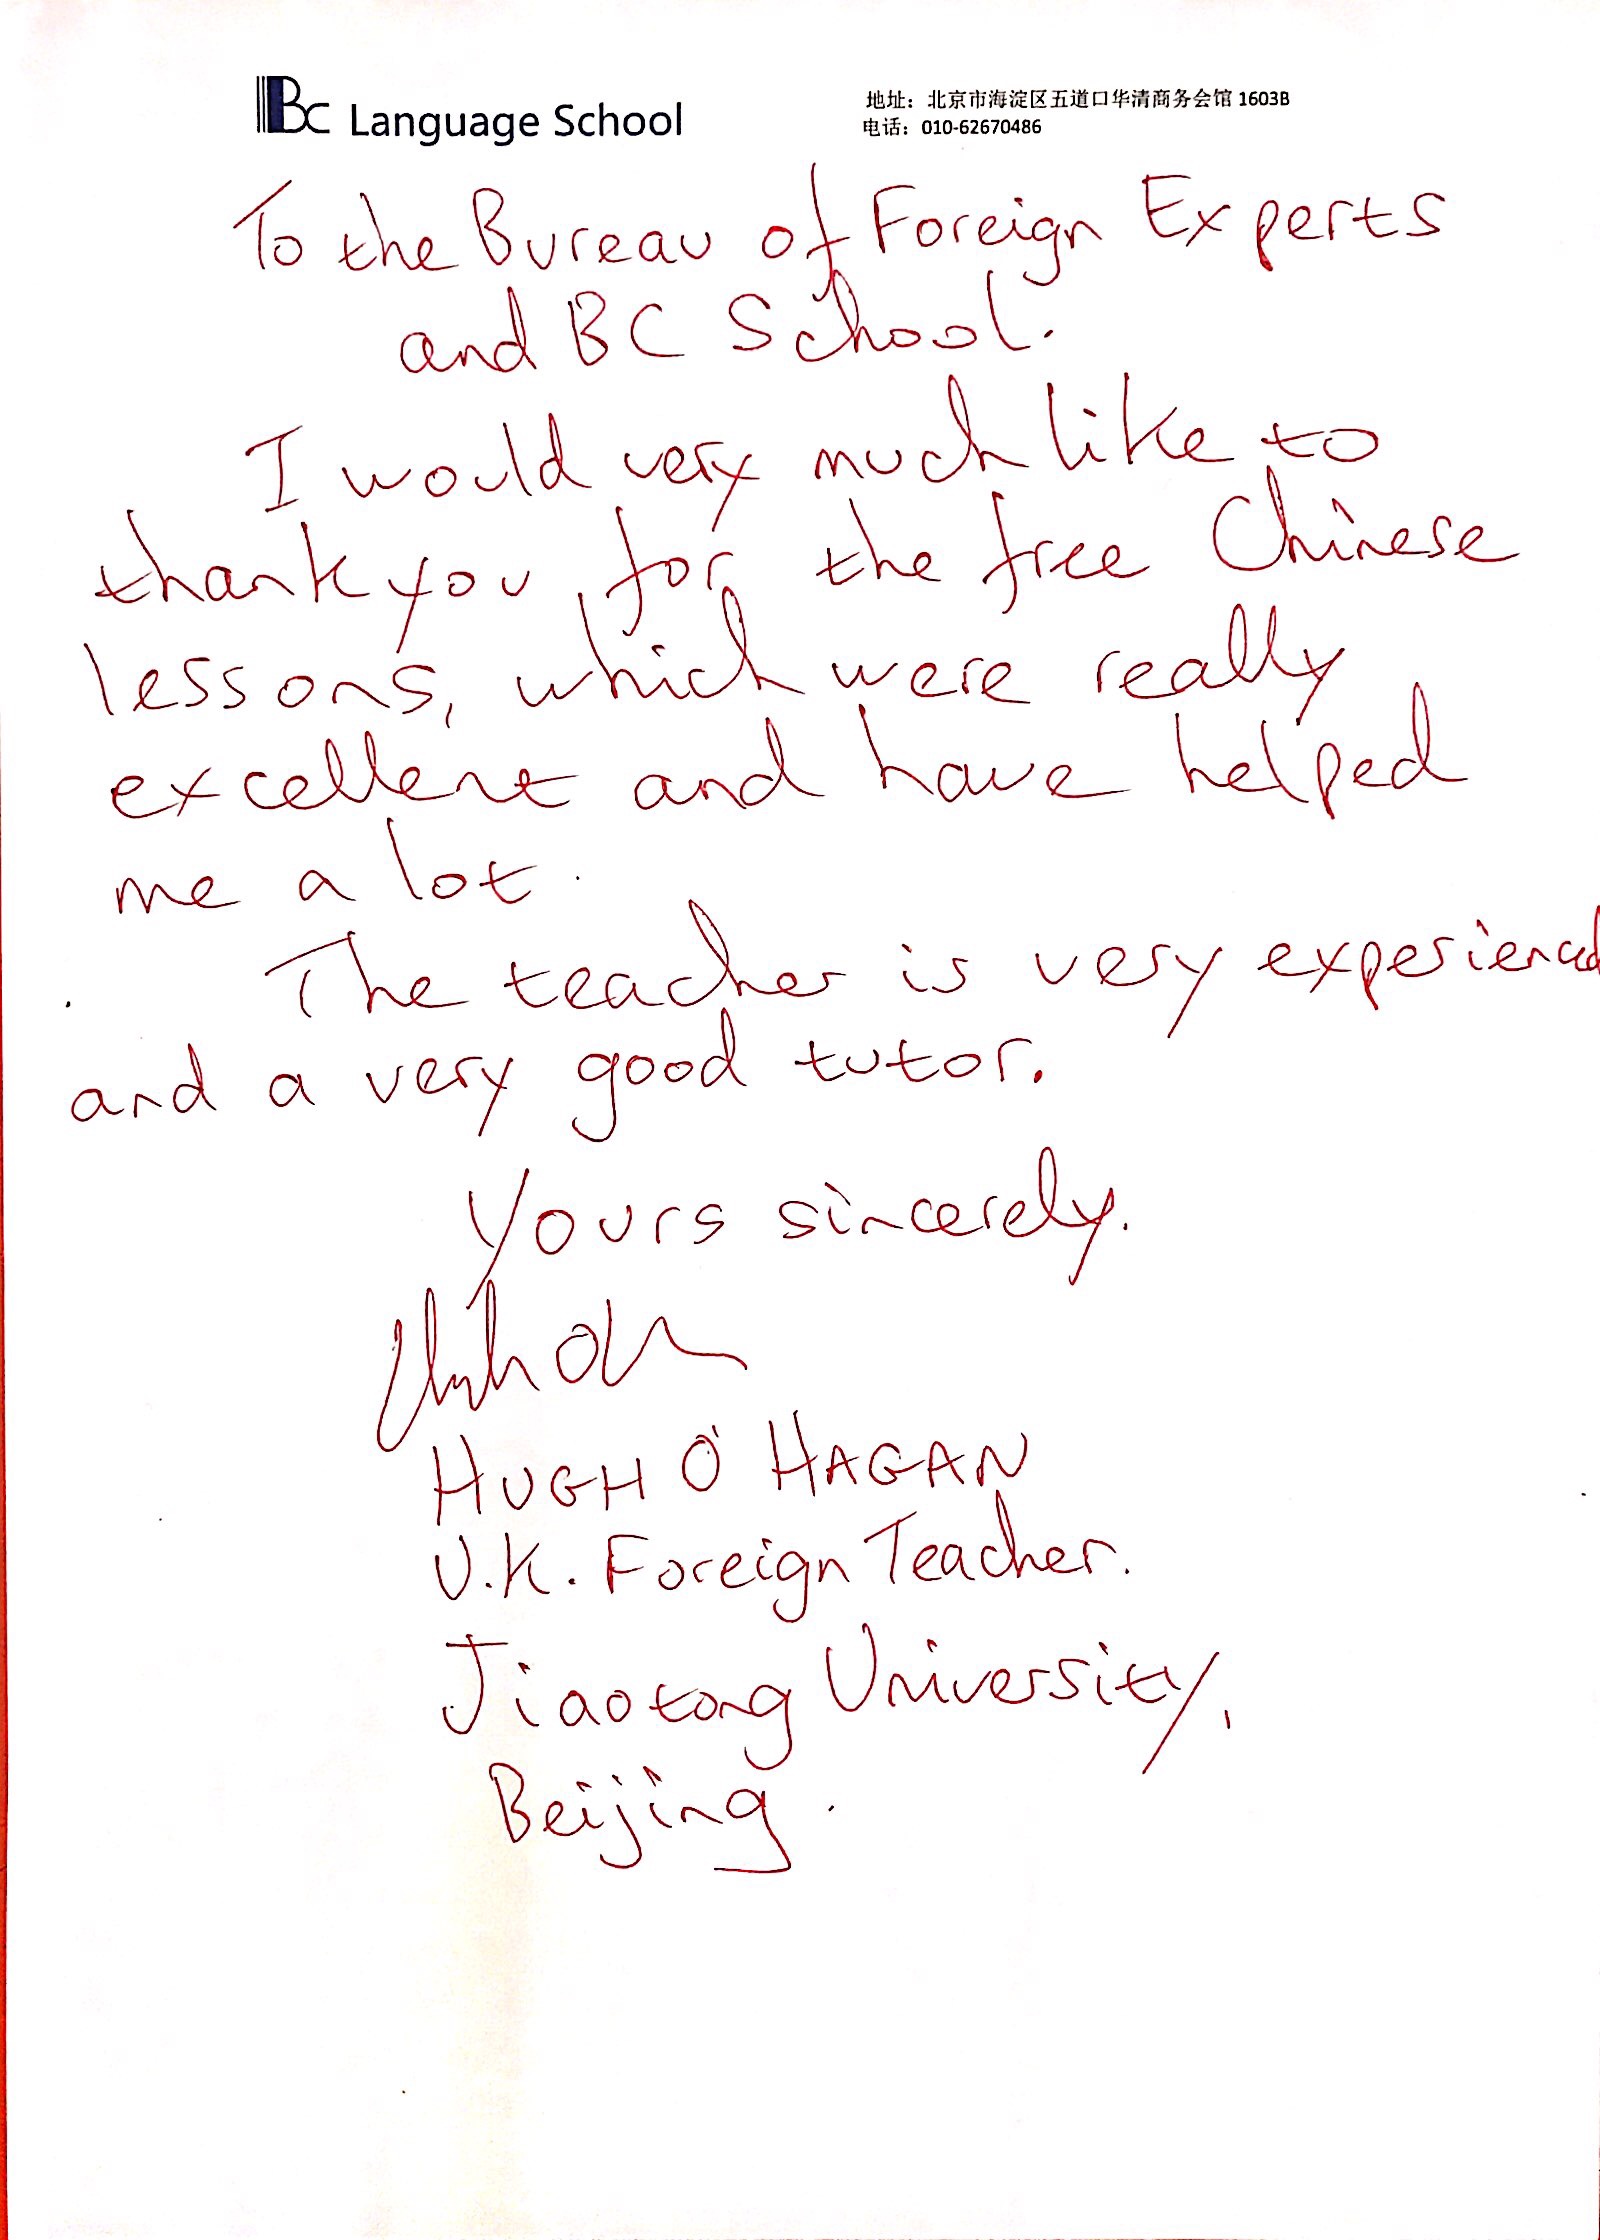 BC Language School
地址：北京市海淀区五道口华清商务会馆 1603B
电话：010-62670486
To the Bureau of Foreign Experts
and BC School.
I would very much like to
thank you for the free Chinese
lessons, which were really
excellent and have helped
me a lot.
The teacher is very experienced
and a very good tutor.
Yours sincerely.
HUGH O'HAGAN
U.K. Foreign Teacher.
Jiaotong University,
Beijing.